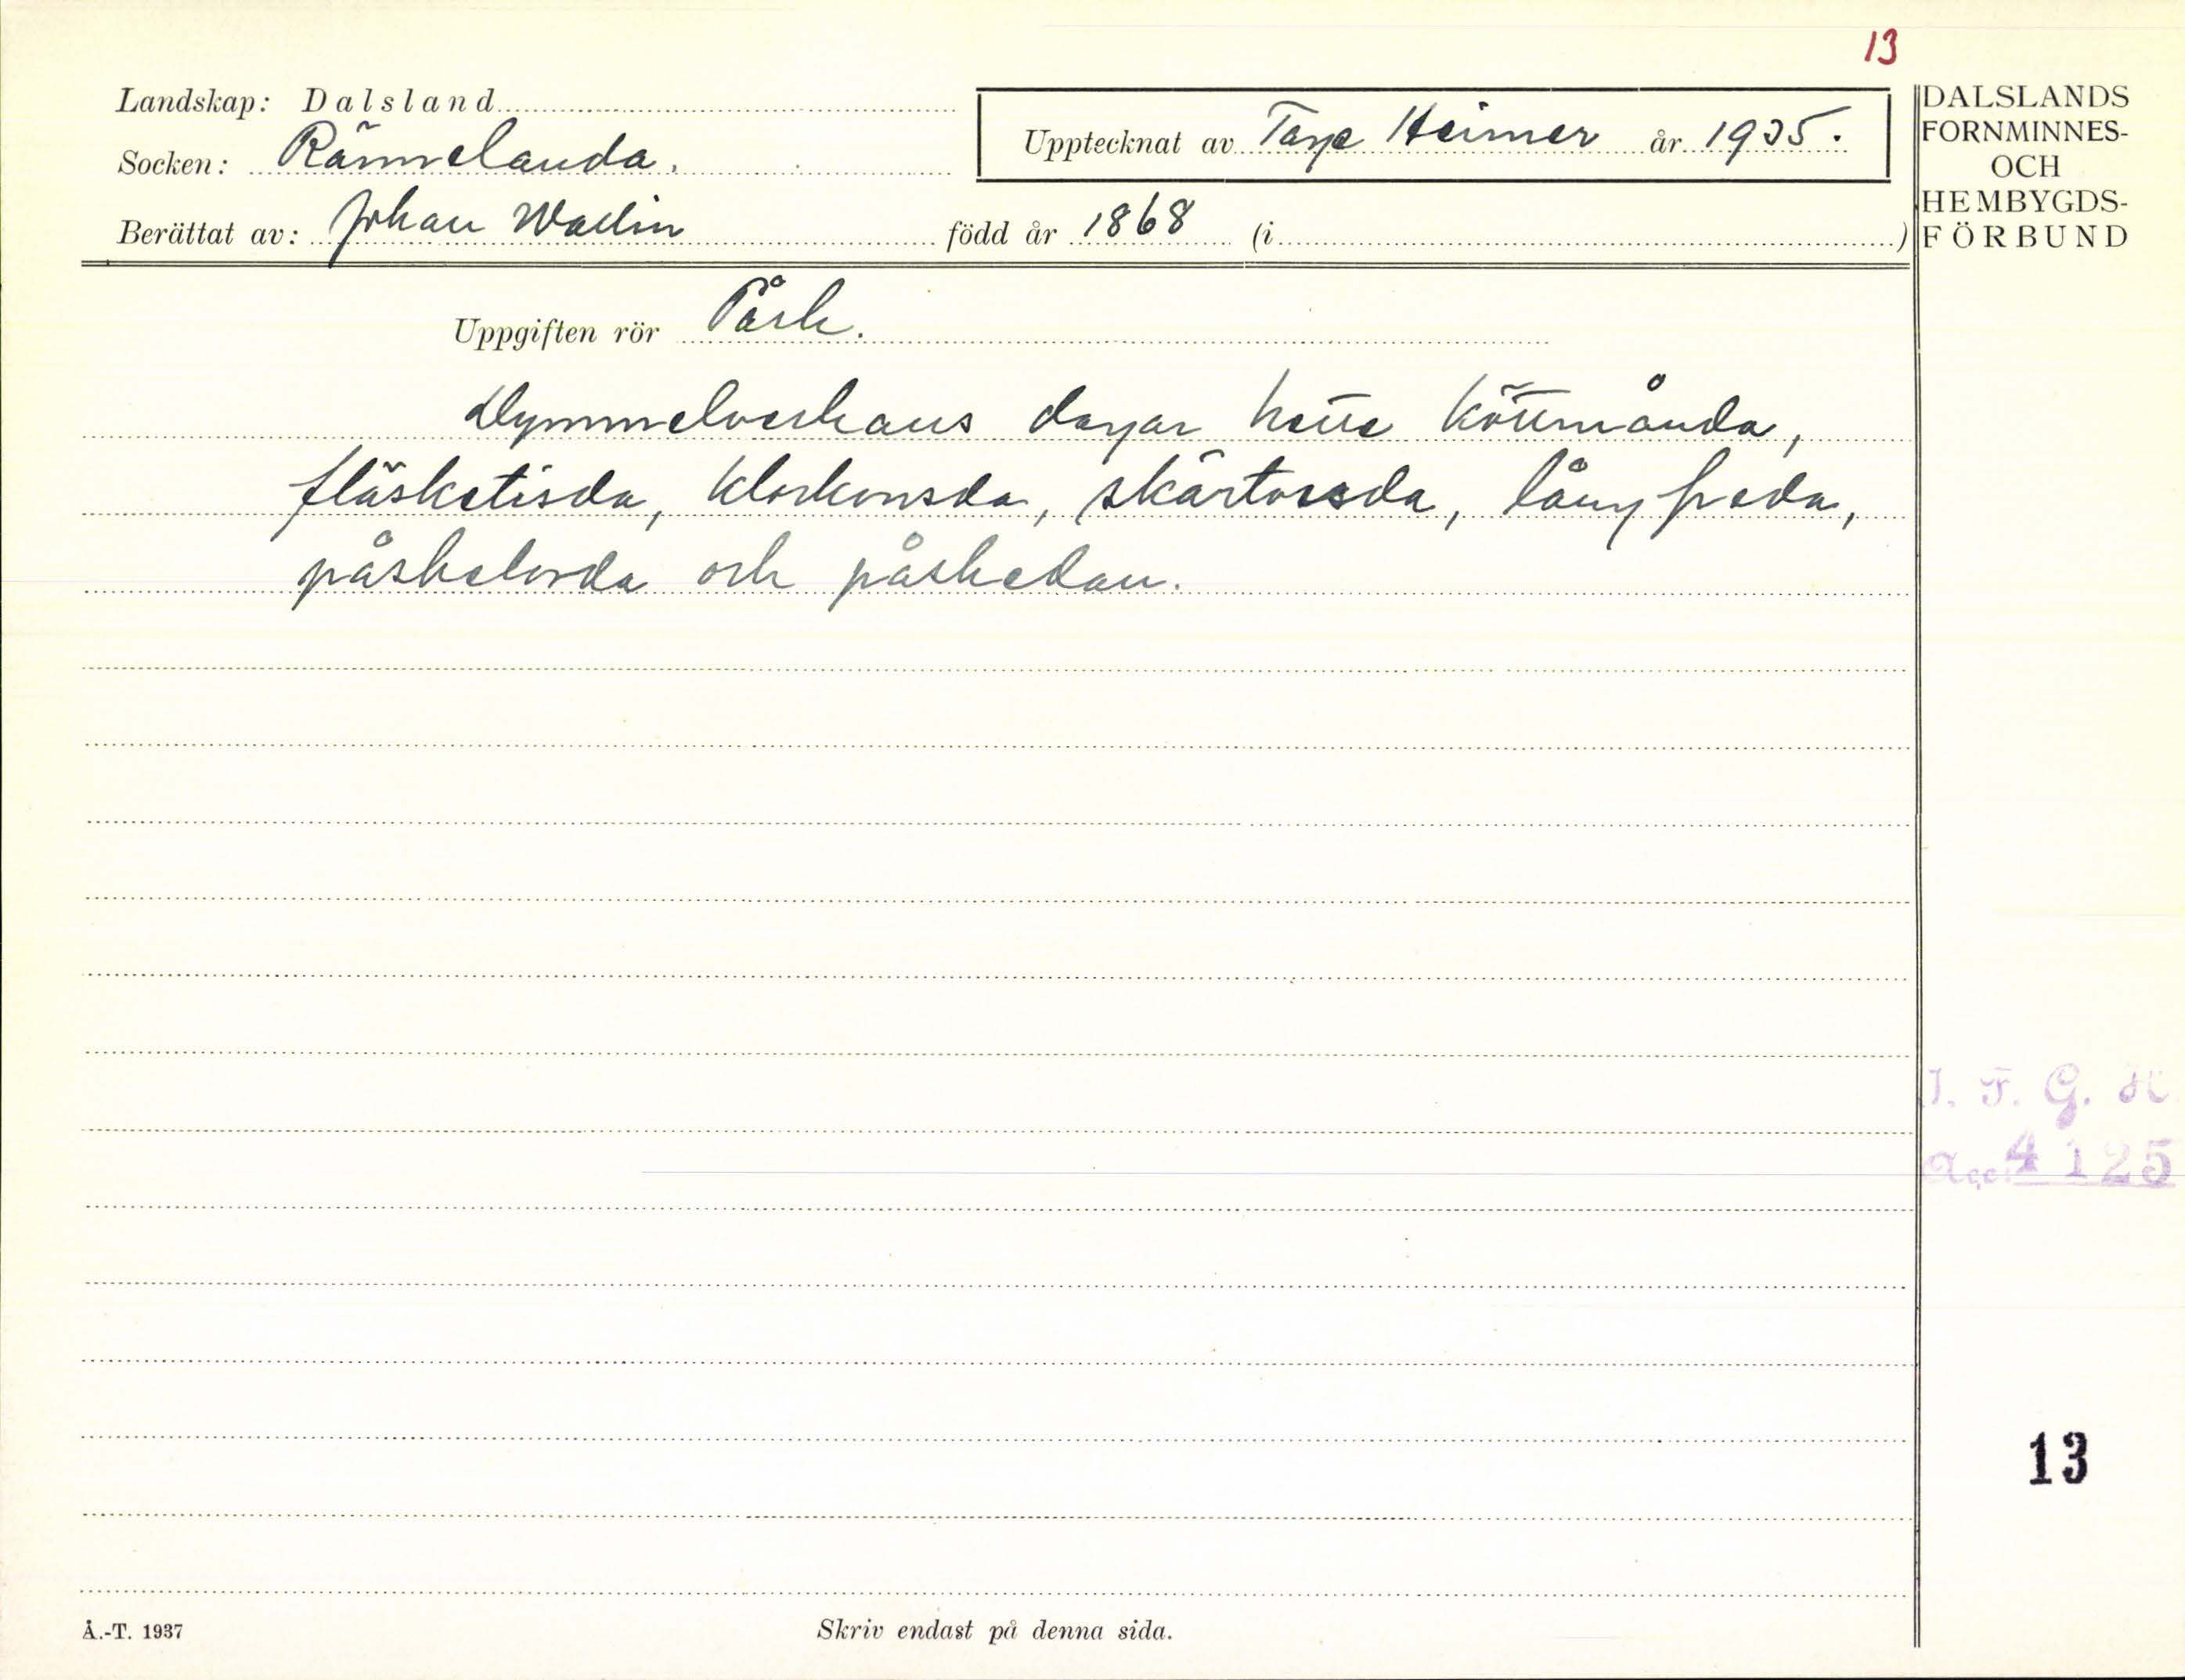 13
Landskap: Dalsland
Upptecknat av Tage Heimer år 1935.
Socken: Rännelanda.
Berättat av: Johan Wallin född år 1868 (i )
DALSLANDS
FORNMINNES-
OCH
HEMBYGDS-
FÖRBUND
Uppgiften rör Påsk.
Dymmelveckans dagar hette köttmånda,
fläsketisda, klockonsda, skärtorsda, långfreda,
påskelörda och påskedan.
I. F. G. H
Acc. 4125
13
Å.-T. 1937
Skriv endast på denna sida.